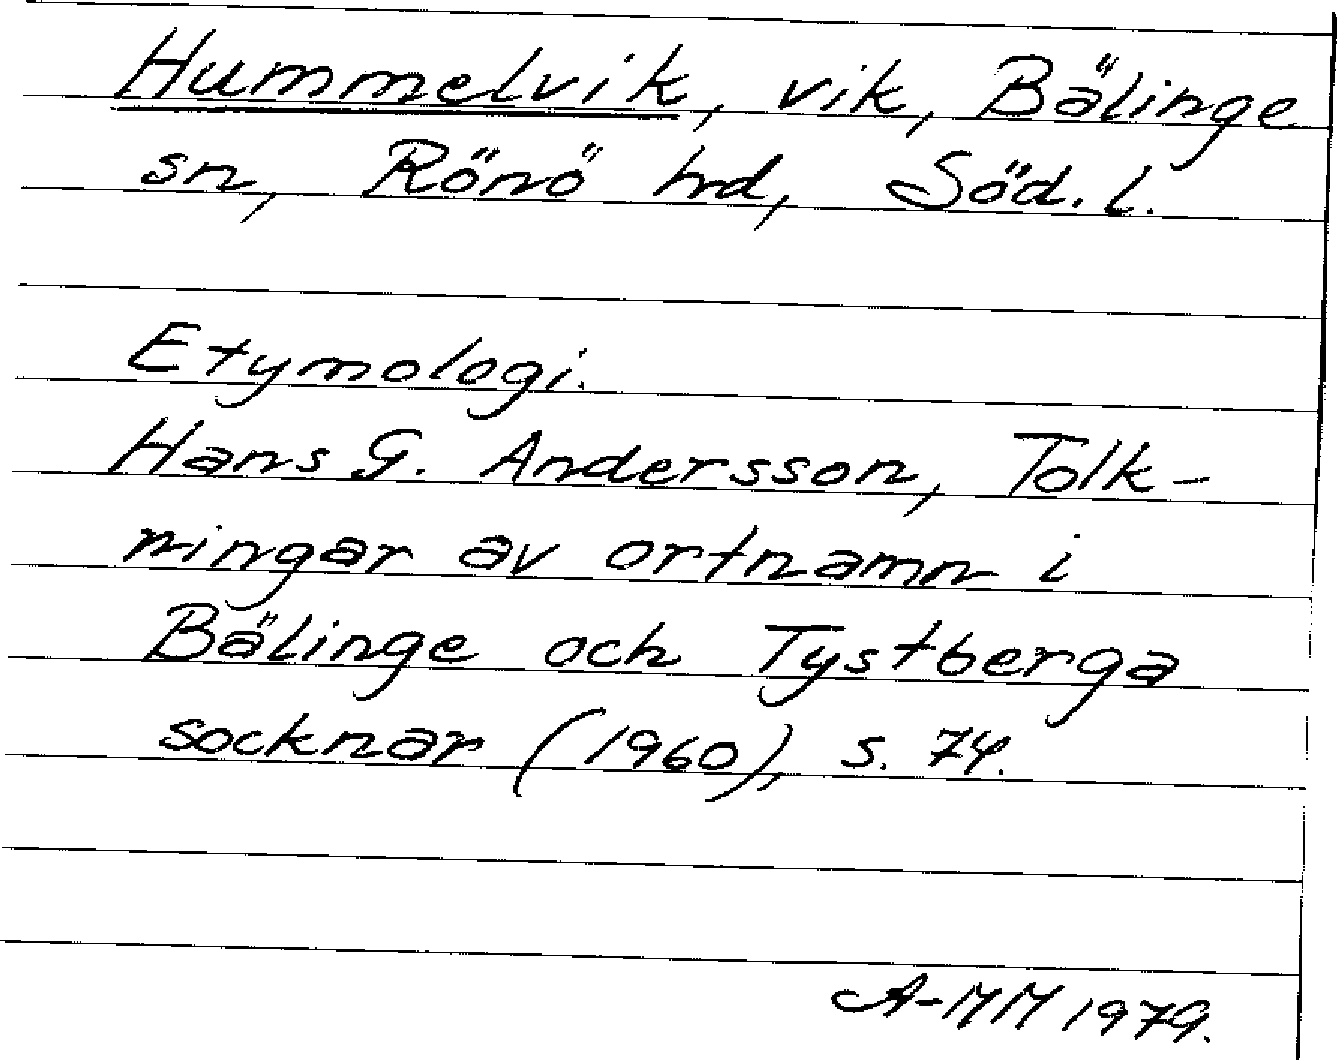 Hummelvik, vik, Bälinge
sn, Rönö hd, Söd. l.
Etymologi.
Hans G. Andersson, Tolk-
ningar av ortnamn i
Bälinge och Tystberga
socknar (1960), s. 74.
A-MM 1979.